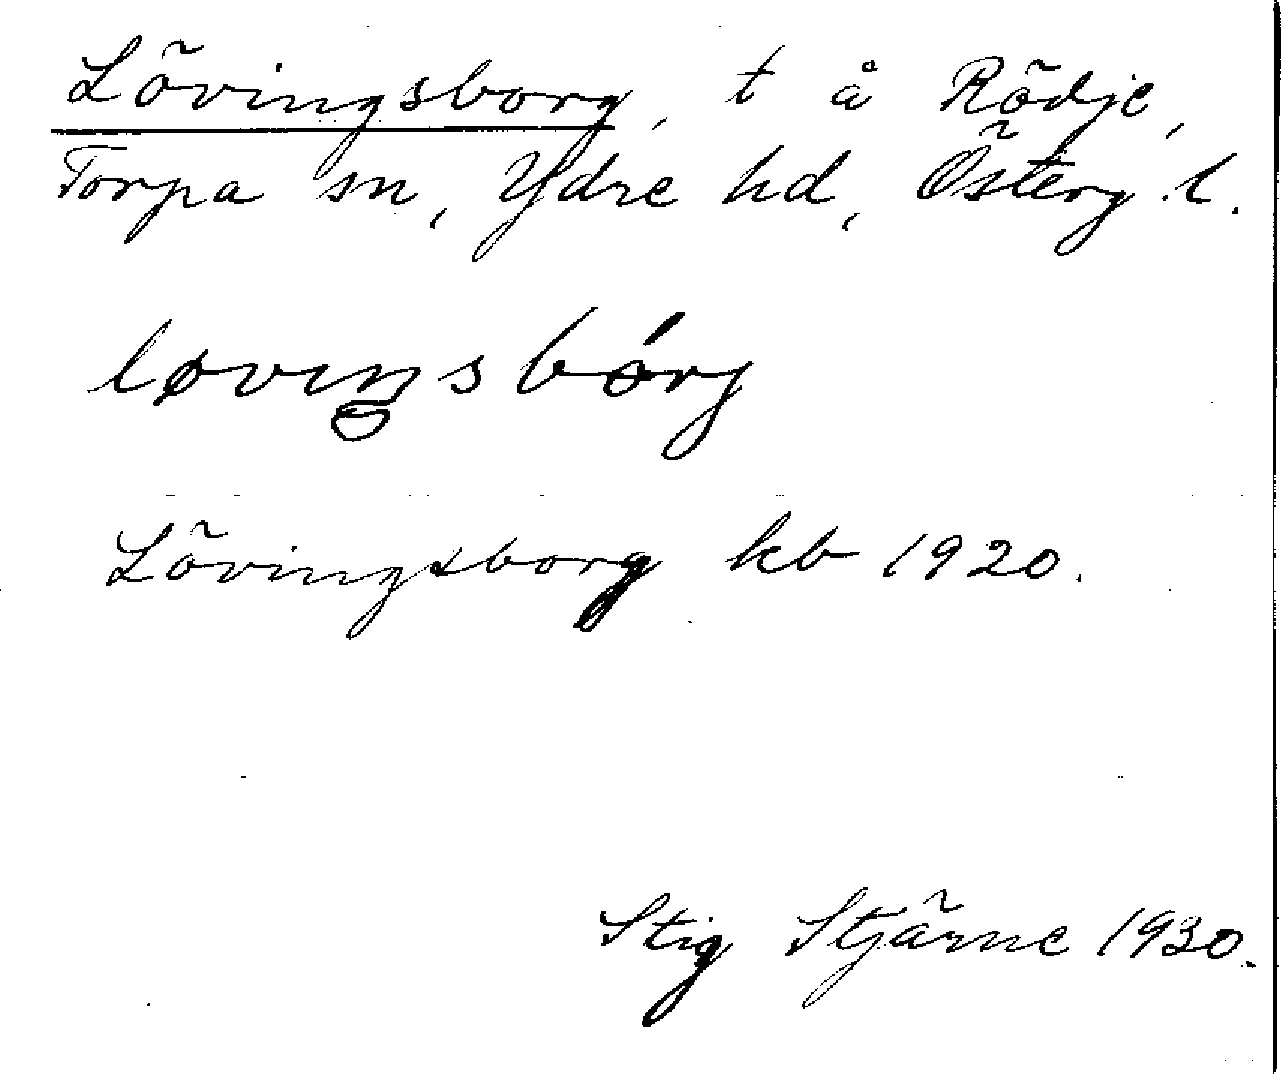 Lövingsborg, t å Rödje,
Torpa sn, Ydre hd, Österg. l.
løvıŋsbórj
Lövingsborg kb 1920.
Stig Stjärne 1930.